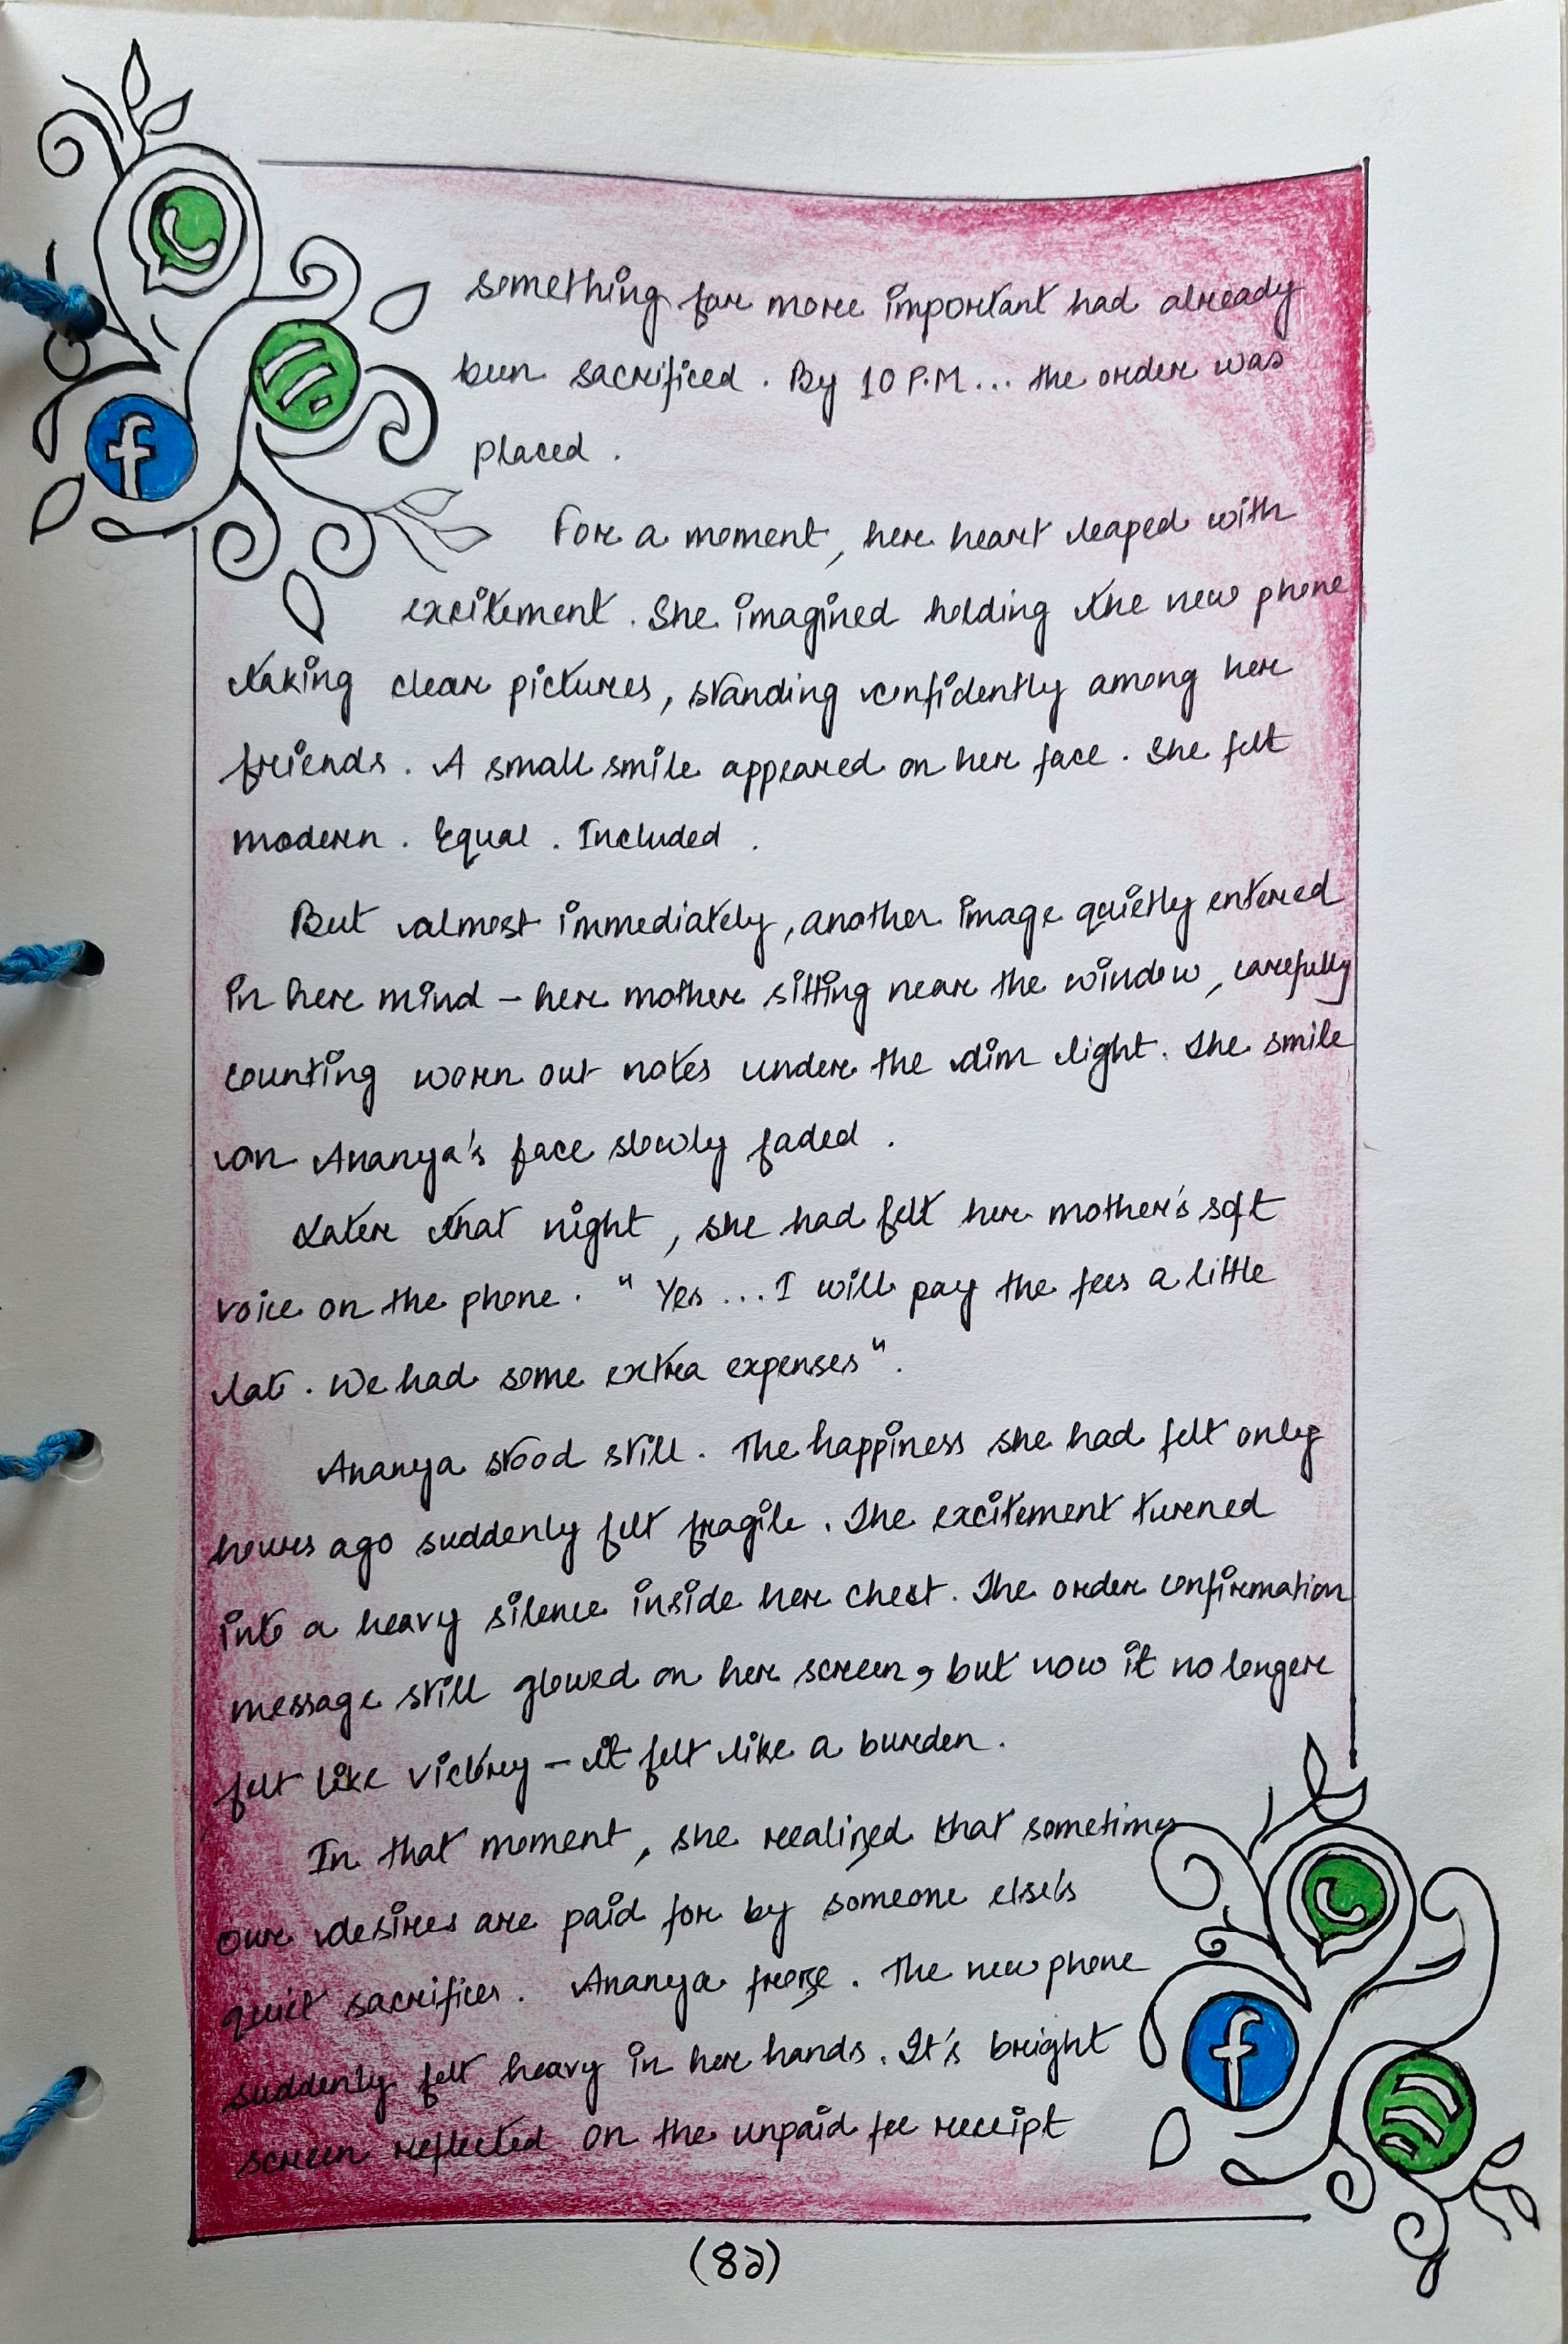 something far more important had already
been sacrificed. By 10 P.M... the order was
placed.
For a moment, her heart leaped with
excitement. She imagined holding the new phone
taking clear pictures, standing confidently among her
friends. A small smile appeared on her face. She felt
modern. Equal. Included.
But almost immediately, another image quietly entered
in her mind – her mother sitting near the window, carefully
counting worn out notes under the dim light. The smile
on Ananya's face slowly faded.
Later that night, she had felt her mother's soft
voice on the phone. "Yes...I will pay the fees a little
late. We had some extra expenses".
Ananya stood still. The happiness she had felt only
hours ago suddenly felt fragile. The excitement turned
into a heavy silence inside her chest. The order confirmation
message still glowed on her screen, but now it no longer
felt like victory – it felt like a burden.
In that moment, she realized that sometimes
our desires are paid for by someone else's
quiet sacrifices. Ananya froze. The new phone
suddenly felt heavy in her hands. It's bright
screen reflected on the unpaid fee receipt
(82)